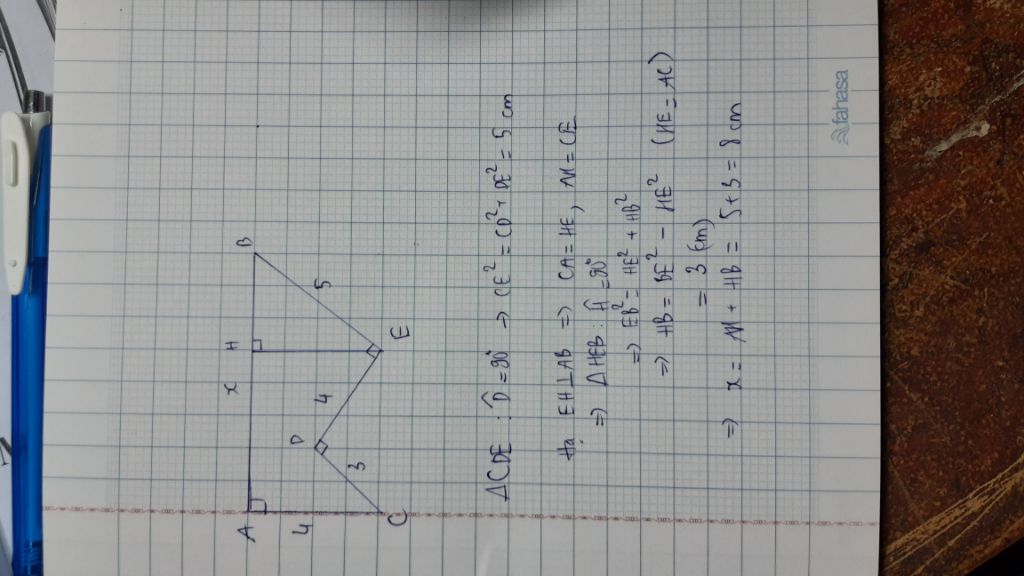 A
x
H
B
4
D
4
5
3
C
E
ΔCDE : D̂ = 90° → CE² = CD² + DE² = 5 cm
Hạ EH⊥AB ⇒ CA = HE, AH = CE
⇒ ΔHEB : Ĥ = 90°
⇒ EB² = HE² + HB²
⇒ HB = BE² - HE² (HE = AC)
= 3 (cm)
⇒ x = AH + HB = 5 + 3 = 8 cm
fahasa